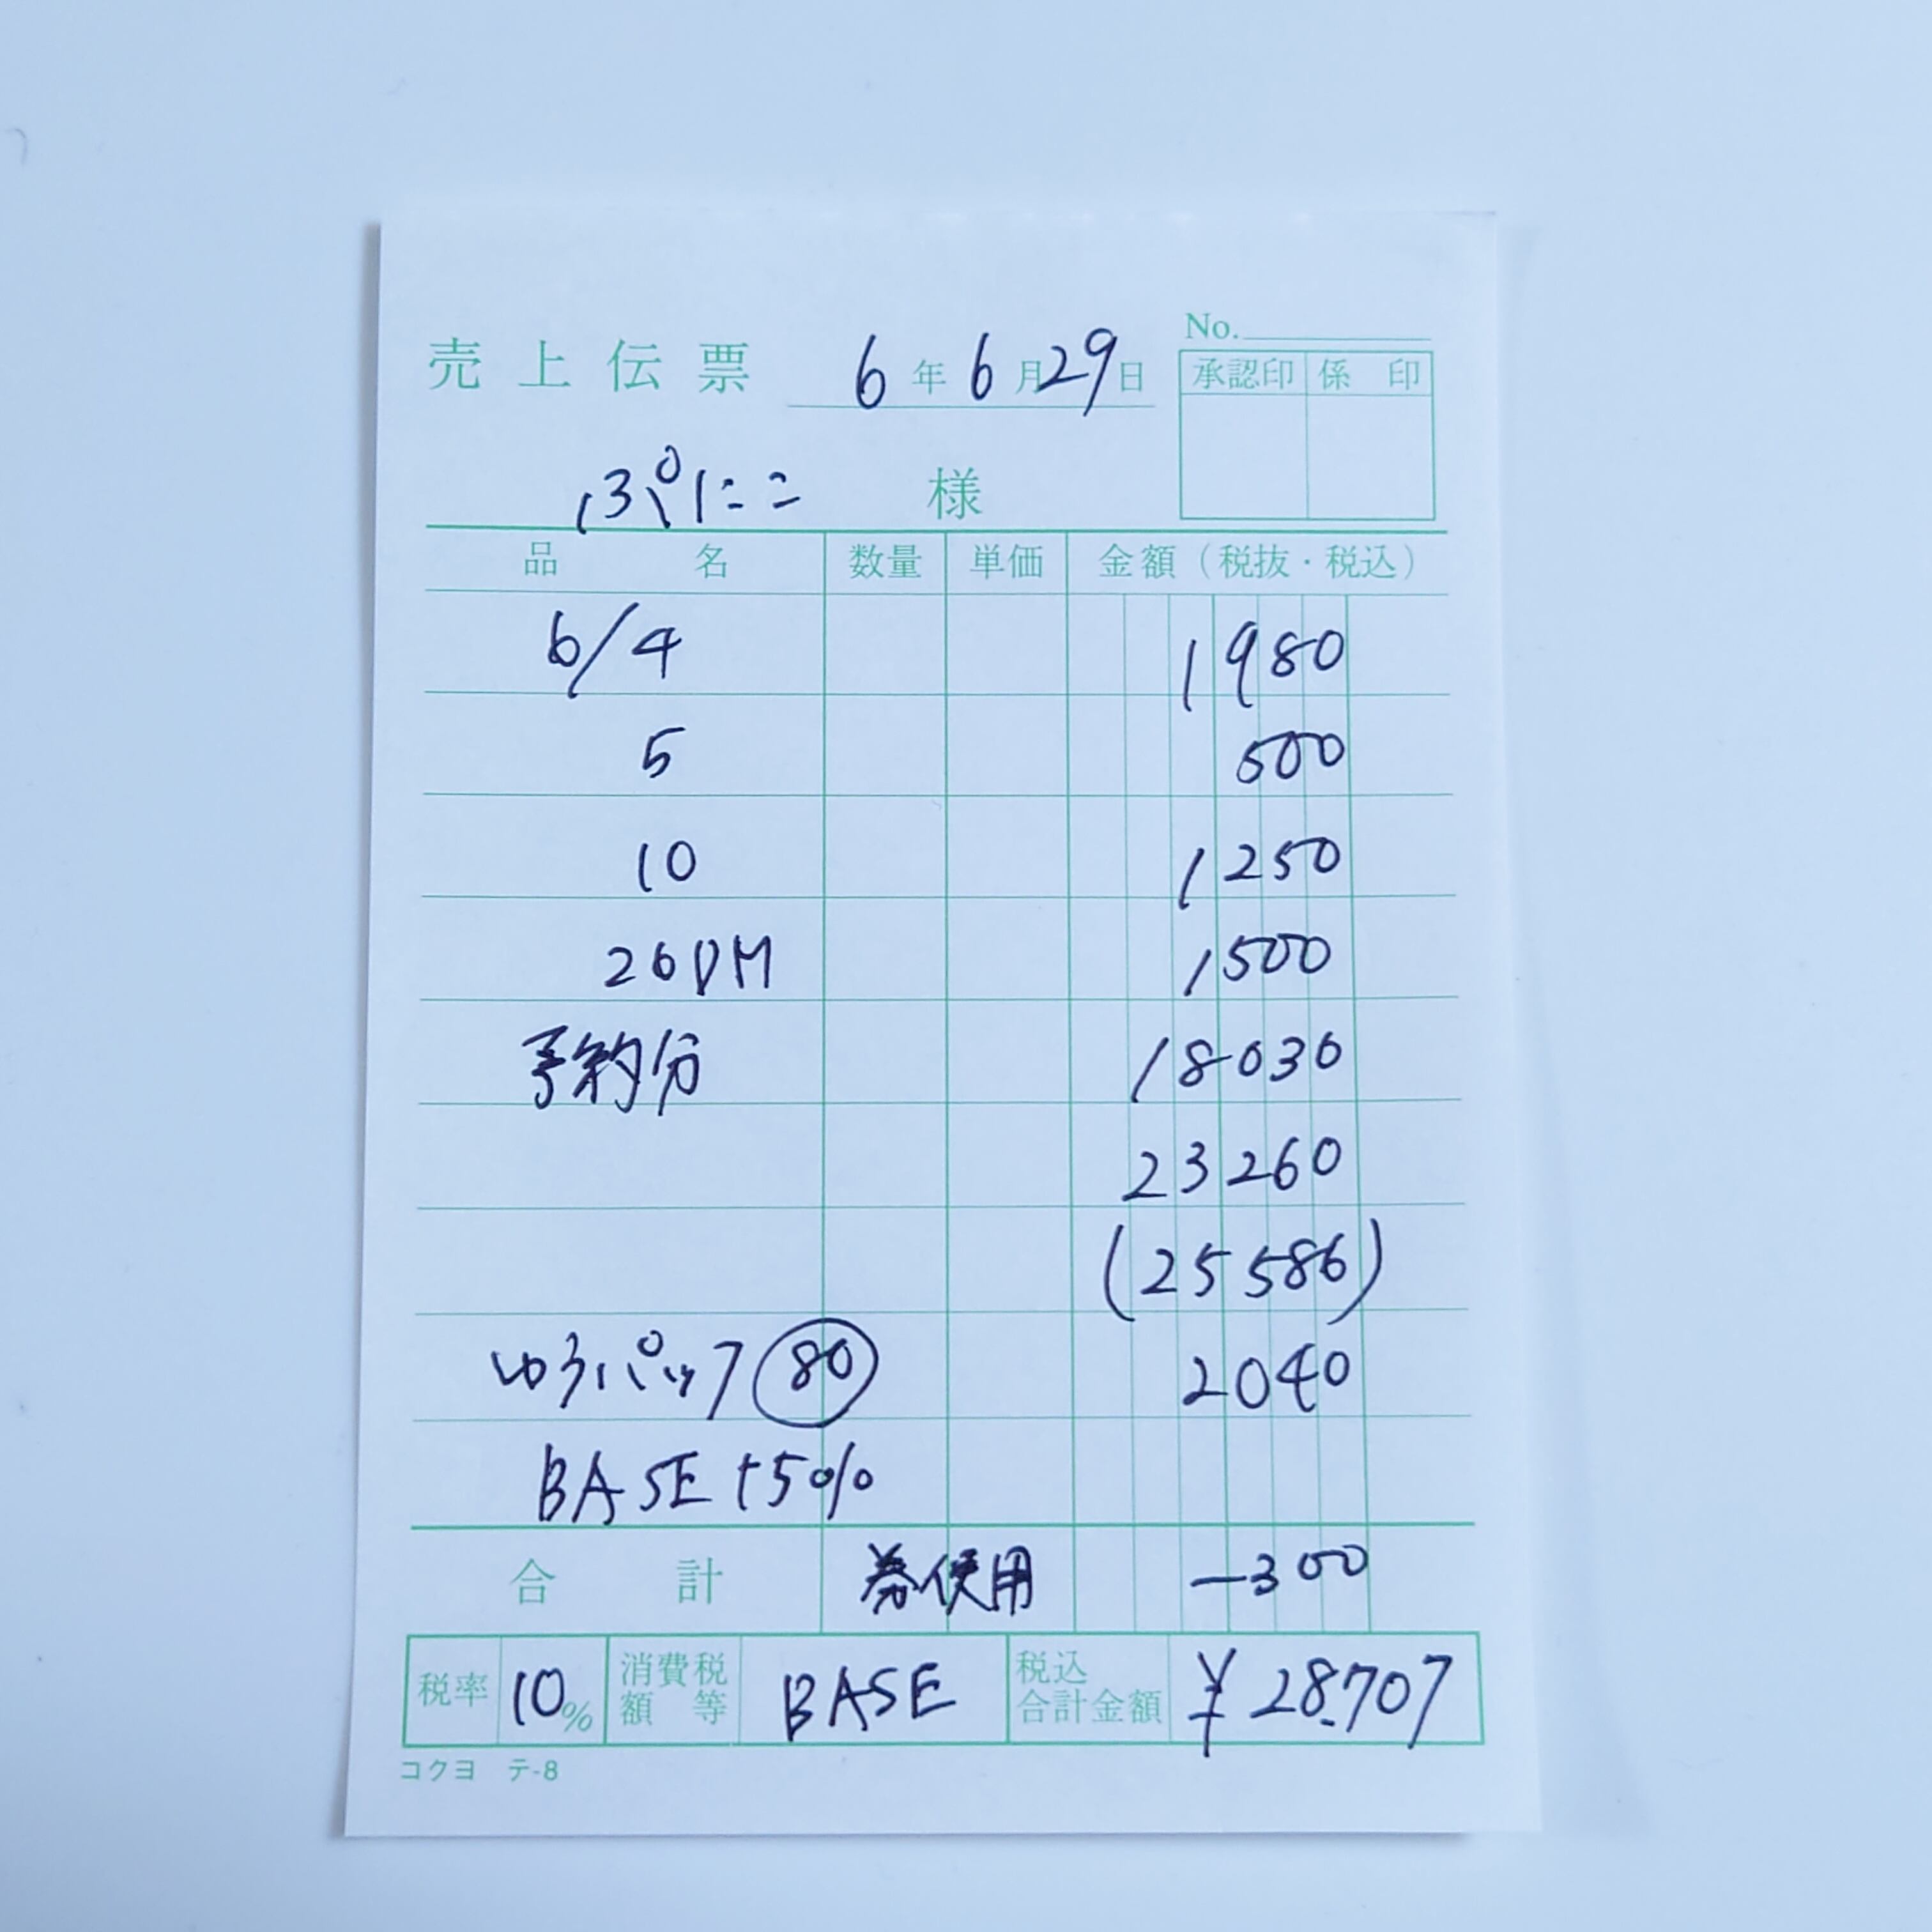 No.
売上伝票 6年6月29日
承認印 係印
ぽぱにこ 様
品名 数量 単価 金額(税抜・税込)
6/4 1980
5 500
10 1250
26DM 1500
予約分 18030
23260
(25586)
ゆうパック 80 2040
BASE+5%
合計 券使用 -300
税率 10% 消費税額等 BASE 税込合計金額 ¥28.707
コクヨ テ-8